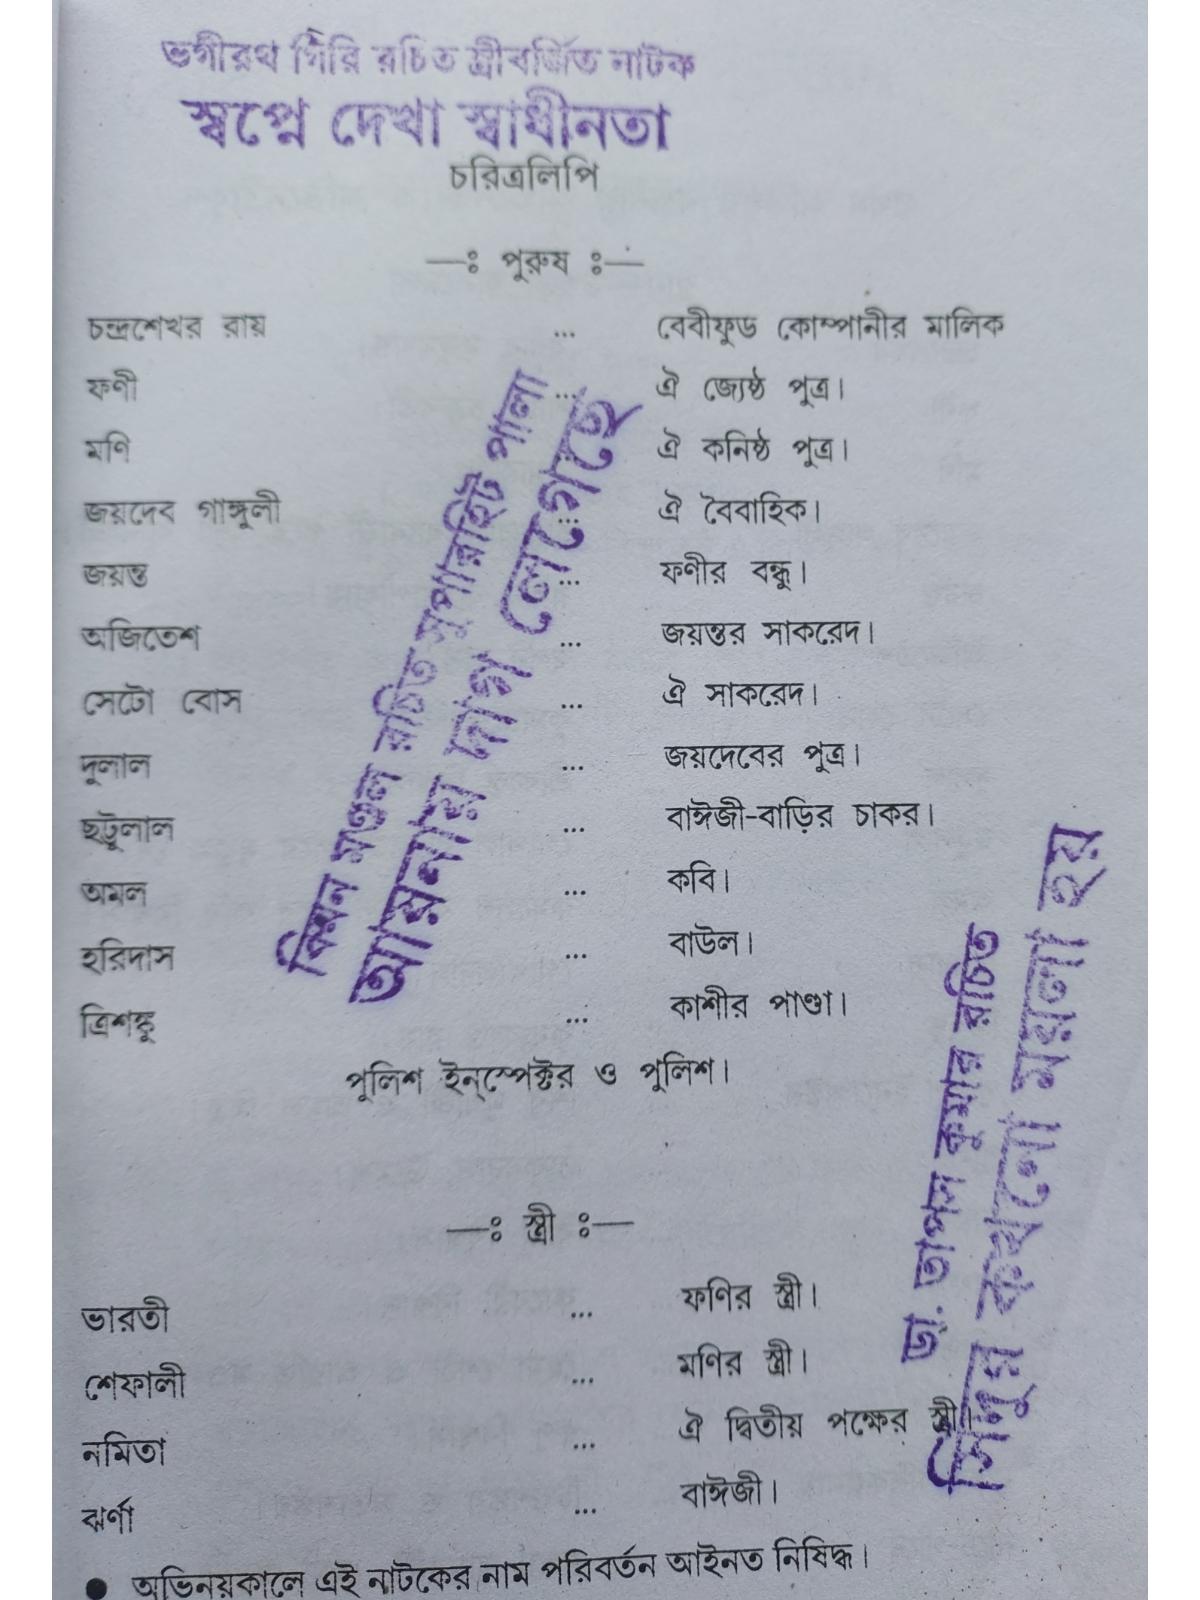 ভগীরথ গিরি রচিত স্ত্রীবর্জিত নাটক
স্বপ্নে দেখা স্বাধীনতা
চরিত্রলিপি
—ঃ পুরুষ ঃ—
চন্দ্রশেখর রায় ... বেবীফুড কোম্পানীর মালিক
ফণী ... ঐ জ্যেষ্ঠ পুত্র।
মণি ঐ কনিষ্ঠ পুত্র।
জয়দেব গাঙ্গুলী ... ঐ বৈবাহিক।
জয়ন্ত ... ফণীর বন্ধু।
অজিতেশ ... জয়ন্তর সাকরেদ।
সেটো বোস ... ঐ সাকরেদ।
দুলাল ... জয়দেবের পুত্র।
ছট্টুলাল ... বাঈজী-বাড়ির চাকর।
অমল ... কবি।
হরিদাস ... বাউল।
ত্রিশঙ্কু ... কাশীর পাণ্ডা।
পুলিশ ইন্‌স্পেক্টর ও পুলিশ।
—ঃ স্ত্রী ঃ—
ভারতী ... ফণির স্ত্রী।
শেফালী ... মণির স্ত্রী।
নমিতা ... ঐ দ্বিতীয় পক্ষের স্ত্রী।
ঝর্ণা ... বাঈজী।
● অভিনয়কালে এই নাটকের নাম পরিবর্তন আইনত নিষিদ্ধ।
মণ্ডল রচিত সুপারহিট পালা
আয়নায় দাগ লেগেছে
ডা. তাপস কুমার রচিত
সিঁদুর কখনো ময়লা হয়